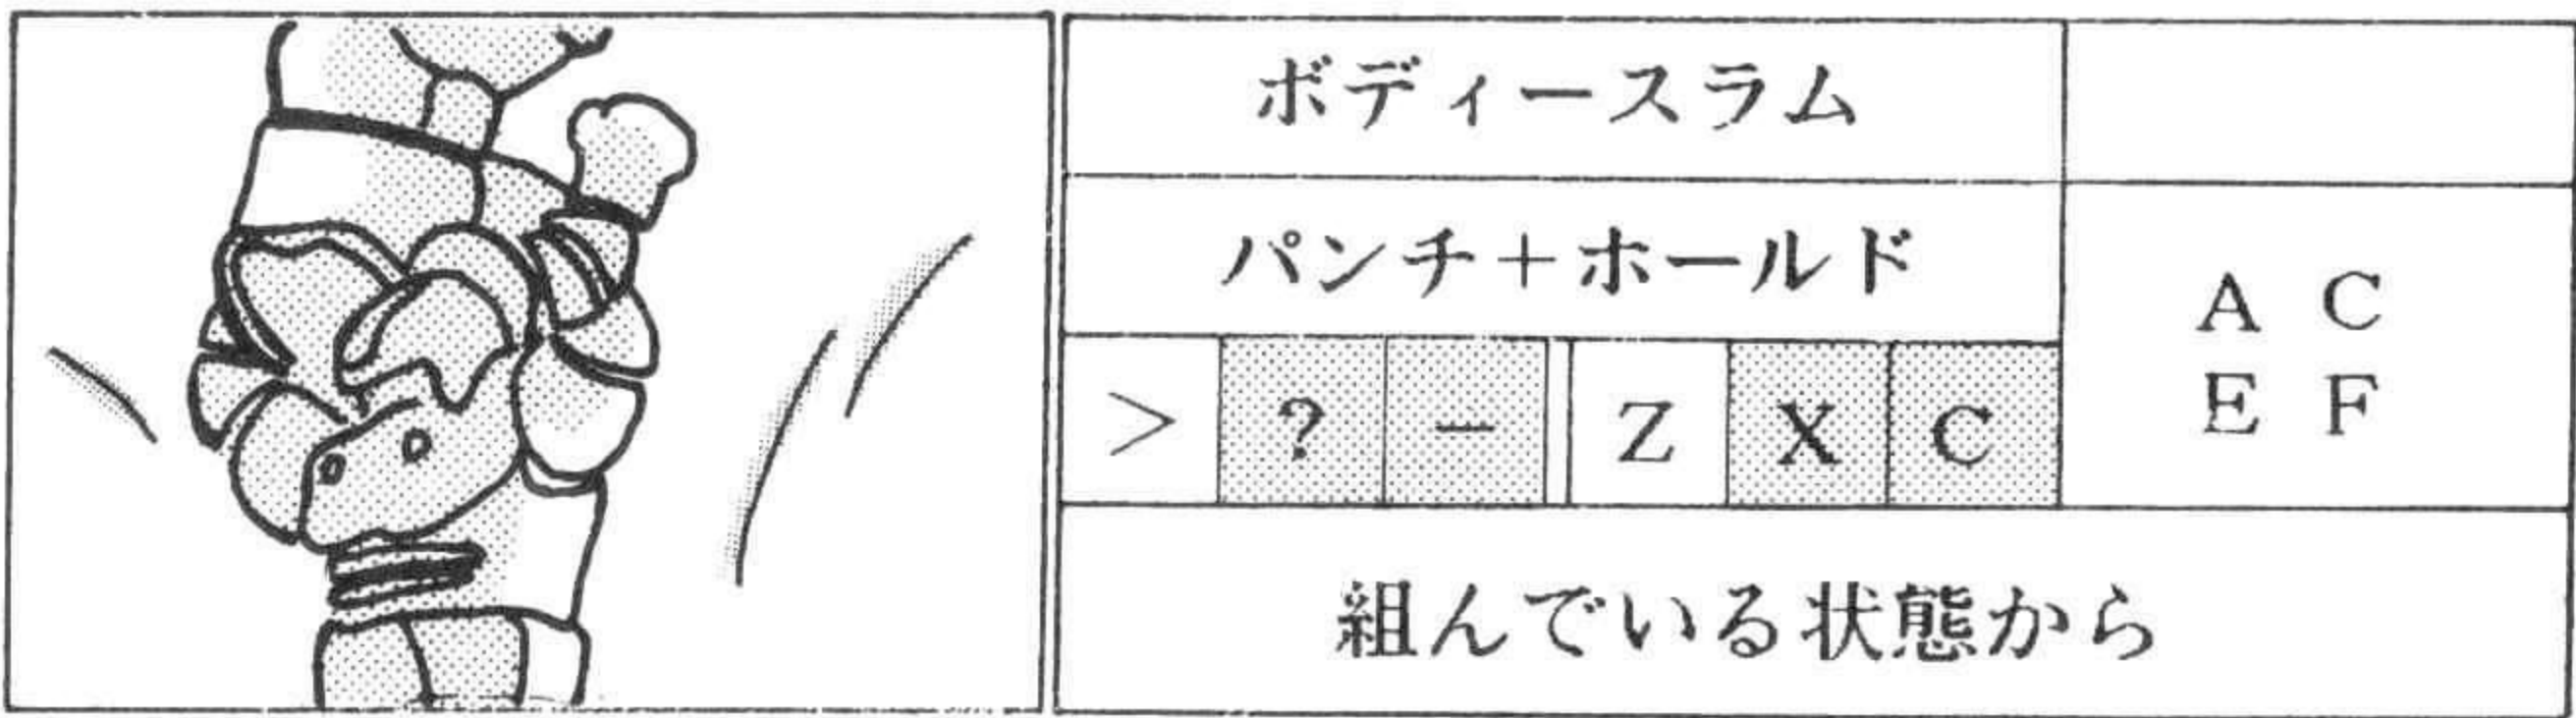 ボディースラム
パンチ+ホールド
> ? ー Z X C
A C
E F
組んでいる状態から